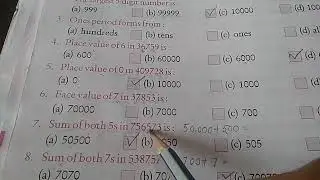 largest 5 digit number is
(a) 999 (b) 99999 (c) 10000
3. One period forms from :
(a) hundreds (b) tens (c) ones (d) all
4. Place value of 6 in 36759 is :
(a) 600 (b) 60000 (c) 6000
5. Place value of 0 in 409728 is :
(a) 0 (b) 10000 (c) 1000
6. Face value of 7 in 37853 is :
(a) 70000 (b) 7000 (c) 700
7. Sum of both 5s in 756573 is : 50,000+500 =
(a) 50500 (b) (c) 50050
8. Sum of both 7s in 538757 700+7 =
(a) 7070 (c) 707